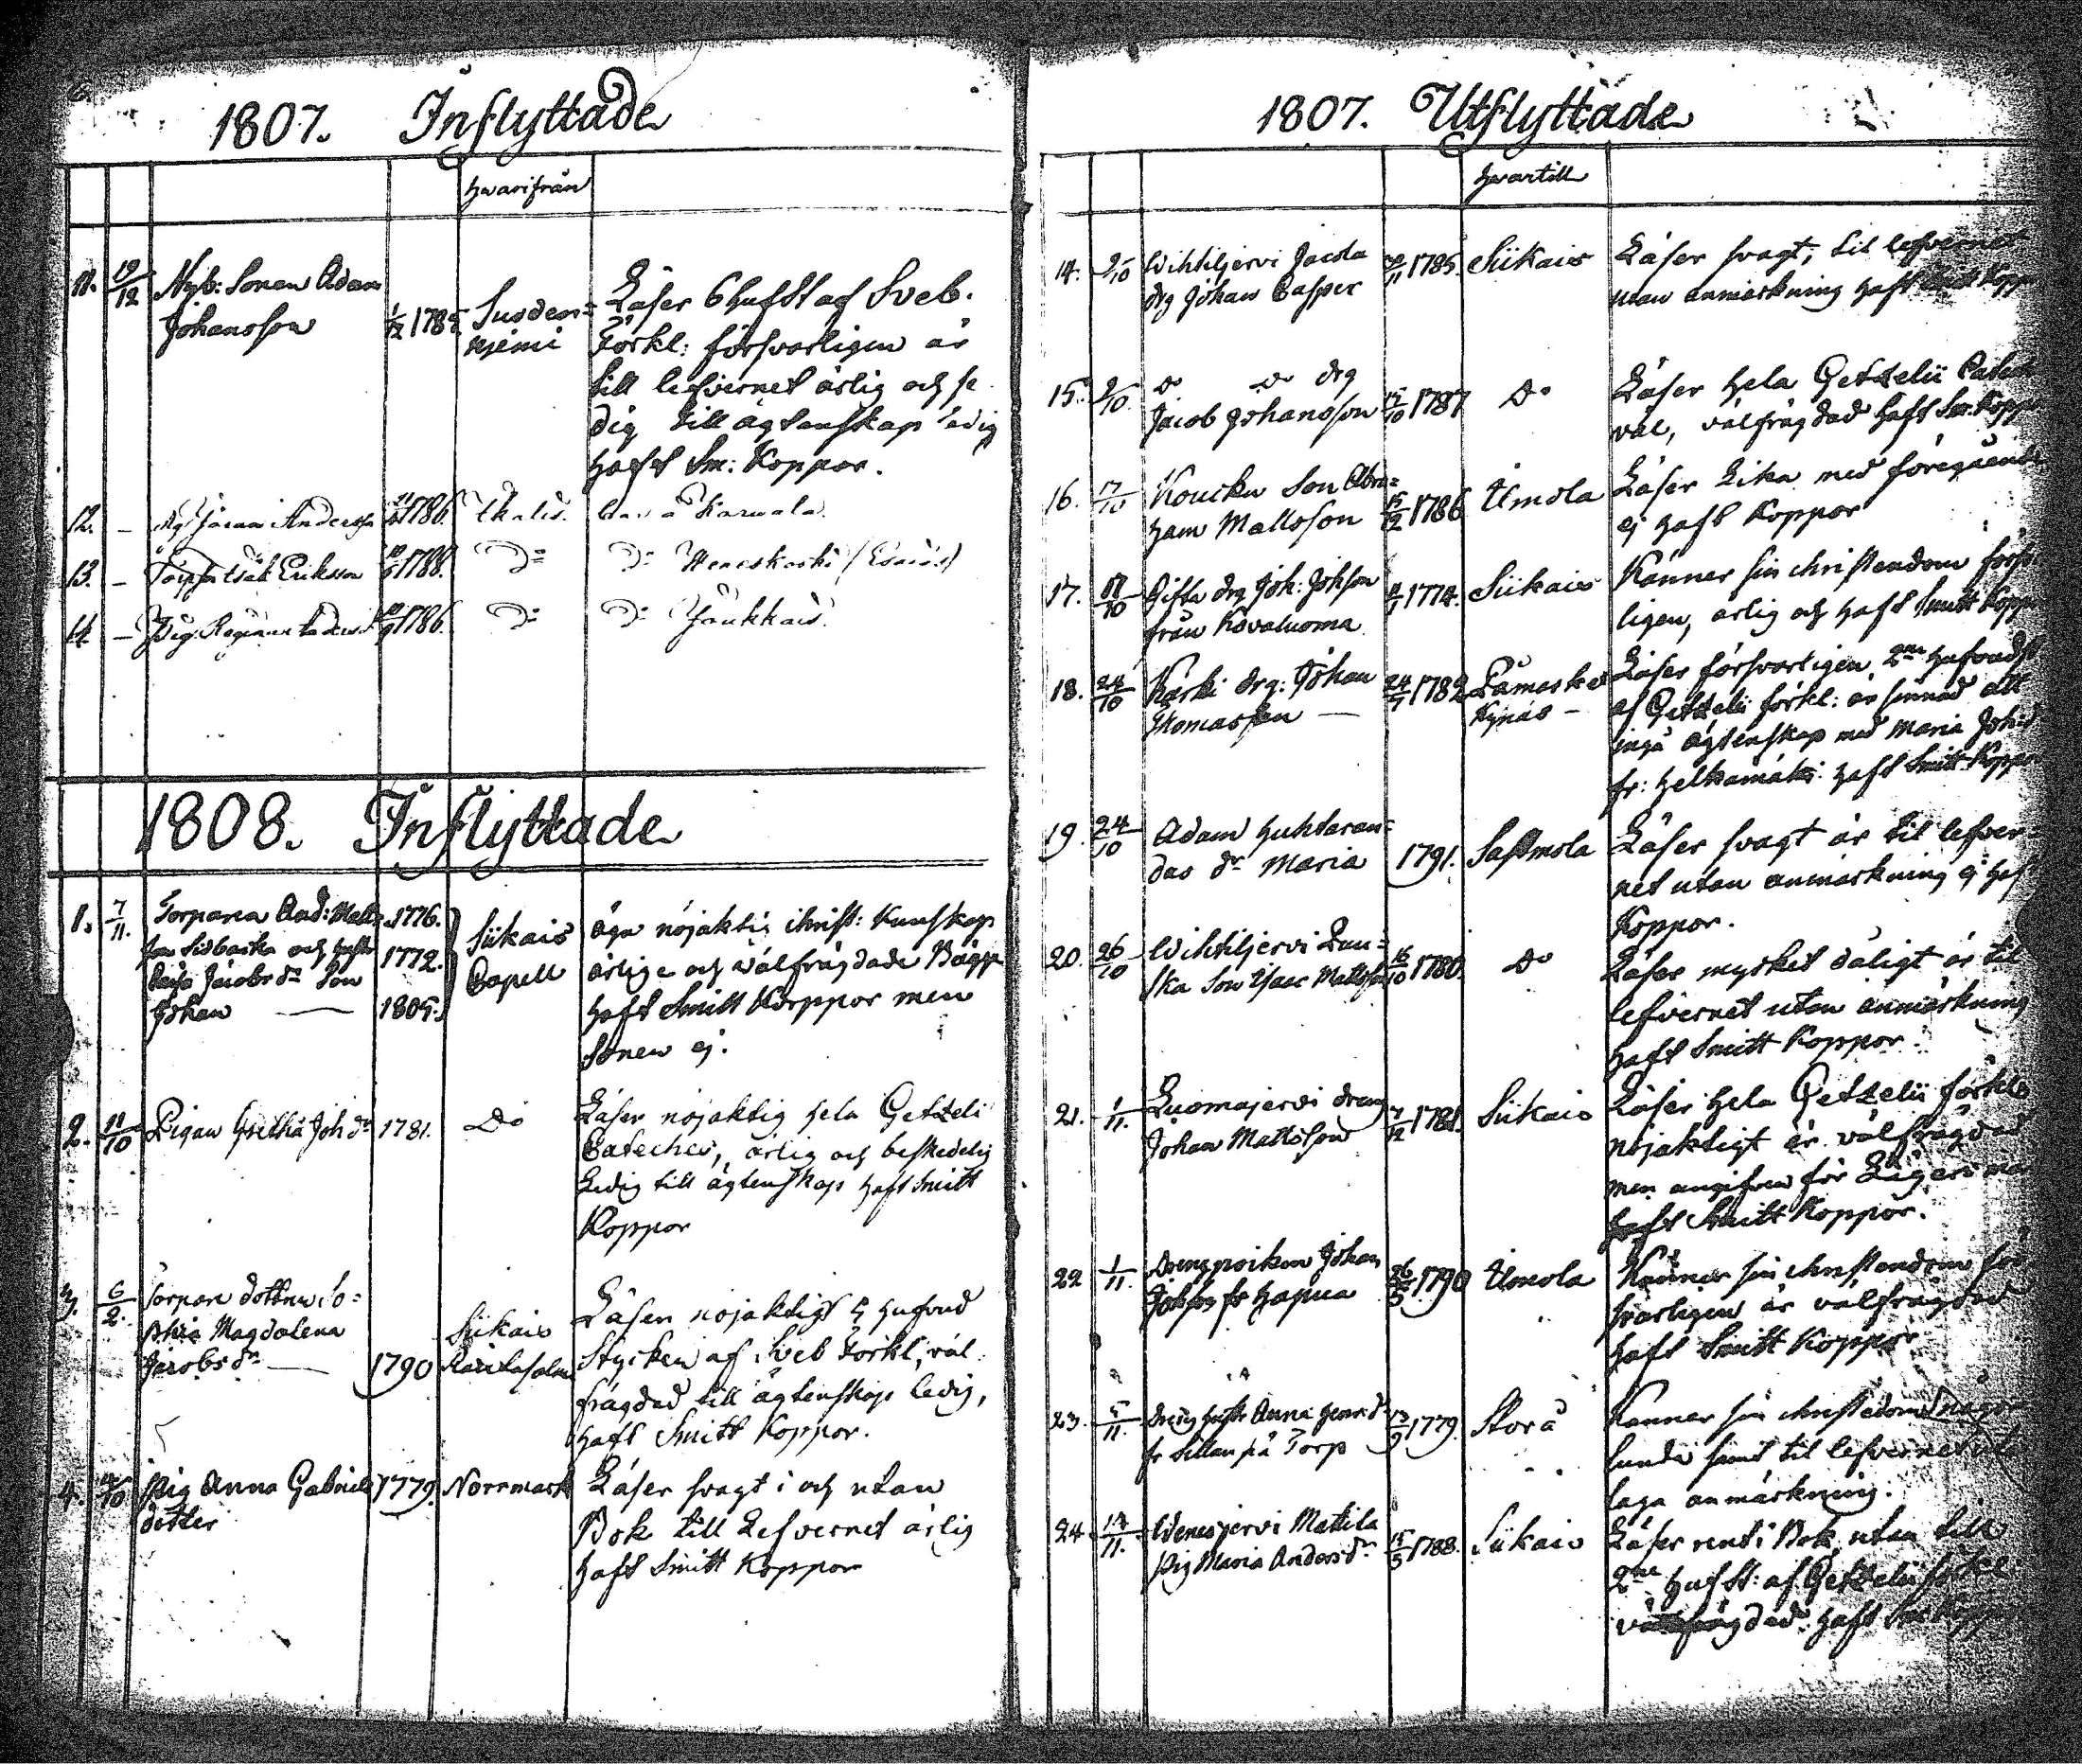 1807. Inflyttade
hvarifrån
11. 19/12 Nyb: Sonen Adam
Johansson
1/12 178
Läser 6 hufst af Sveb.
Förkl: försvarligen är
till lefvernet ärlig och
till ägtenskap ledig
haft Sm: Koppor.
12. – Anderss 1786.
13. – Eriksson 1788.
14. – Pig. Regina 1786.
1808. Inflyttade
1. 7/11. Torparen And: Matts 1776.
och hustr
Jacobs dr Son 1772.
Johan — 1805.
Siikais
Capell
Äga nöjaktig christ: Kunskap
ärlige och välfrägdade Bägge
haft Smitt Koppor men
Sonen ej.
2. 11/10 Pigan Gretha Joh dr 1781. Do
Läser nöjaktig hela Getzeli
Cateches, ärlig och beskedelig
Ledig till ägtenskap haft Smitt
Koppor
3. 6/2. Torpare dottren So=
phia Magdalena
Jacobs dr — 1790
Siikais
Läser nöjaktigt 5 hufvud
Stycken af Sveb Förkl; väl
frägdad till ägtenskap ledig,
haft Smitt Koppor.
4. Pig Anna Gabriels
dotter 1779. Norrmark
Läser svagt i och utan
Bok till Lefvernet ärlig
haft Smitt Koppor
1807. Utflyttade
hvartill
14. Wihteljervi Jacola
drg Johan Casper 1785. Siikais
Läser svagt, til lefvernet
utan anmärkning haft Smitt Koppor
15. do do drg
Jacob Johansson 1787 Do
Läser hela Getzelii Catech
väl, välfrägdad haft Sm. Koppor
16. 17/10 Koucku Son Abra=
ham Mattsson 15/12 1786 Ilmola
Läser Lika med föregående
ej haft Koppor
17. Gifta drg Joh: Johsson
från Kovaluoma 1774. Siikais
Känner sin christendom försvar
ligen, ärlig och haft Smitt Koppor
18. 24/10 Kaski drg: Johan
Thomasson — 1782
Läser försvarligen 2ne hufvudst
af Getzelii förkl: är sinnad att
ingå ägtenskap med Maria Joh: d
fr: Helkamäki haft Smitt Koppor
19. 24/10 Adam Huhtaran=
das dr Maria 1791. Sastmola
Läser svagt är til lefver=
net utan anmärkning ej haft
Koppor.
20. 26/10 Wihteljervi Lau=
ska Son Isaac Mattsson 1780. Do
Läser mycket dåligt är til
lefvernet utan anmärkning
haft Smitt Koppor.
21. 1/11. Luomajervi dreng
Johan Mattsson Siikais
Läser hela Getzelii förkl
nöjaktigt är välfrägdad
men angifven för
haft Smitt Koppor.
22 1/11. Drengpoiken Johan
Johsson fr Hapua 26/5 1790 Ilmola
Känner sin christendom för
svarligen är välfrägdad
haft Smitt Koppor
23. 5/11. Dreng hustr Anna Henrs d
fr Sillanpä Torp 1779. Storå
Känner sin christedom någor
lunda samt til lefvernet utan
laga anmärkning.
24 Wenesjervi Mattila
Pig Maria Anders dr 15/5 1788. Siikais
Läser rent i Bok, utan till
2ne hufst: af Getzelii förkl:
välfrägdad haft Sm: Koppor